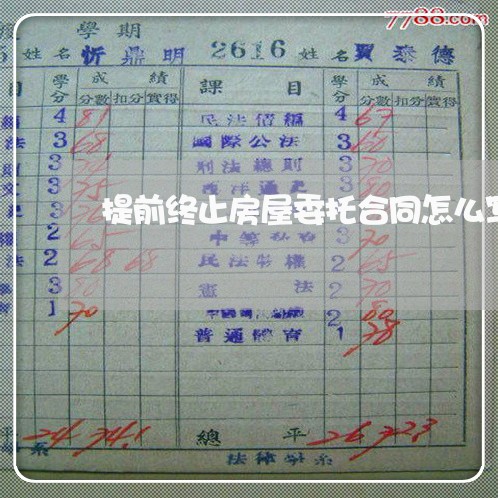 7788.com
學期
姓名 忻鼎明 2616 姓名 賈泰德
目 學分 成績 課目 學分 成績
分數 扣分 實得 分數 扣分 實得
4 81 民法債編 4 67
法 3 68 國際公法 3 60
3 刑法總則 3 70
3 75 西洋通史
提前终止房屋委托合同怎么
2 3 70
法 2 68 68 民法物權 2 65
3 憲法 2 70
1 70 2 80
普通體育 1 78
平 24 74.1 總平 26 72.3
系 法律學系